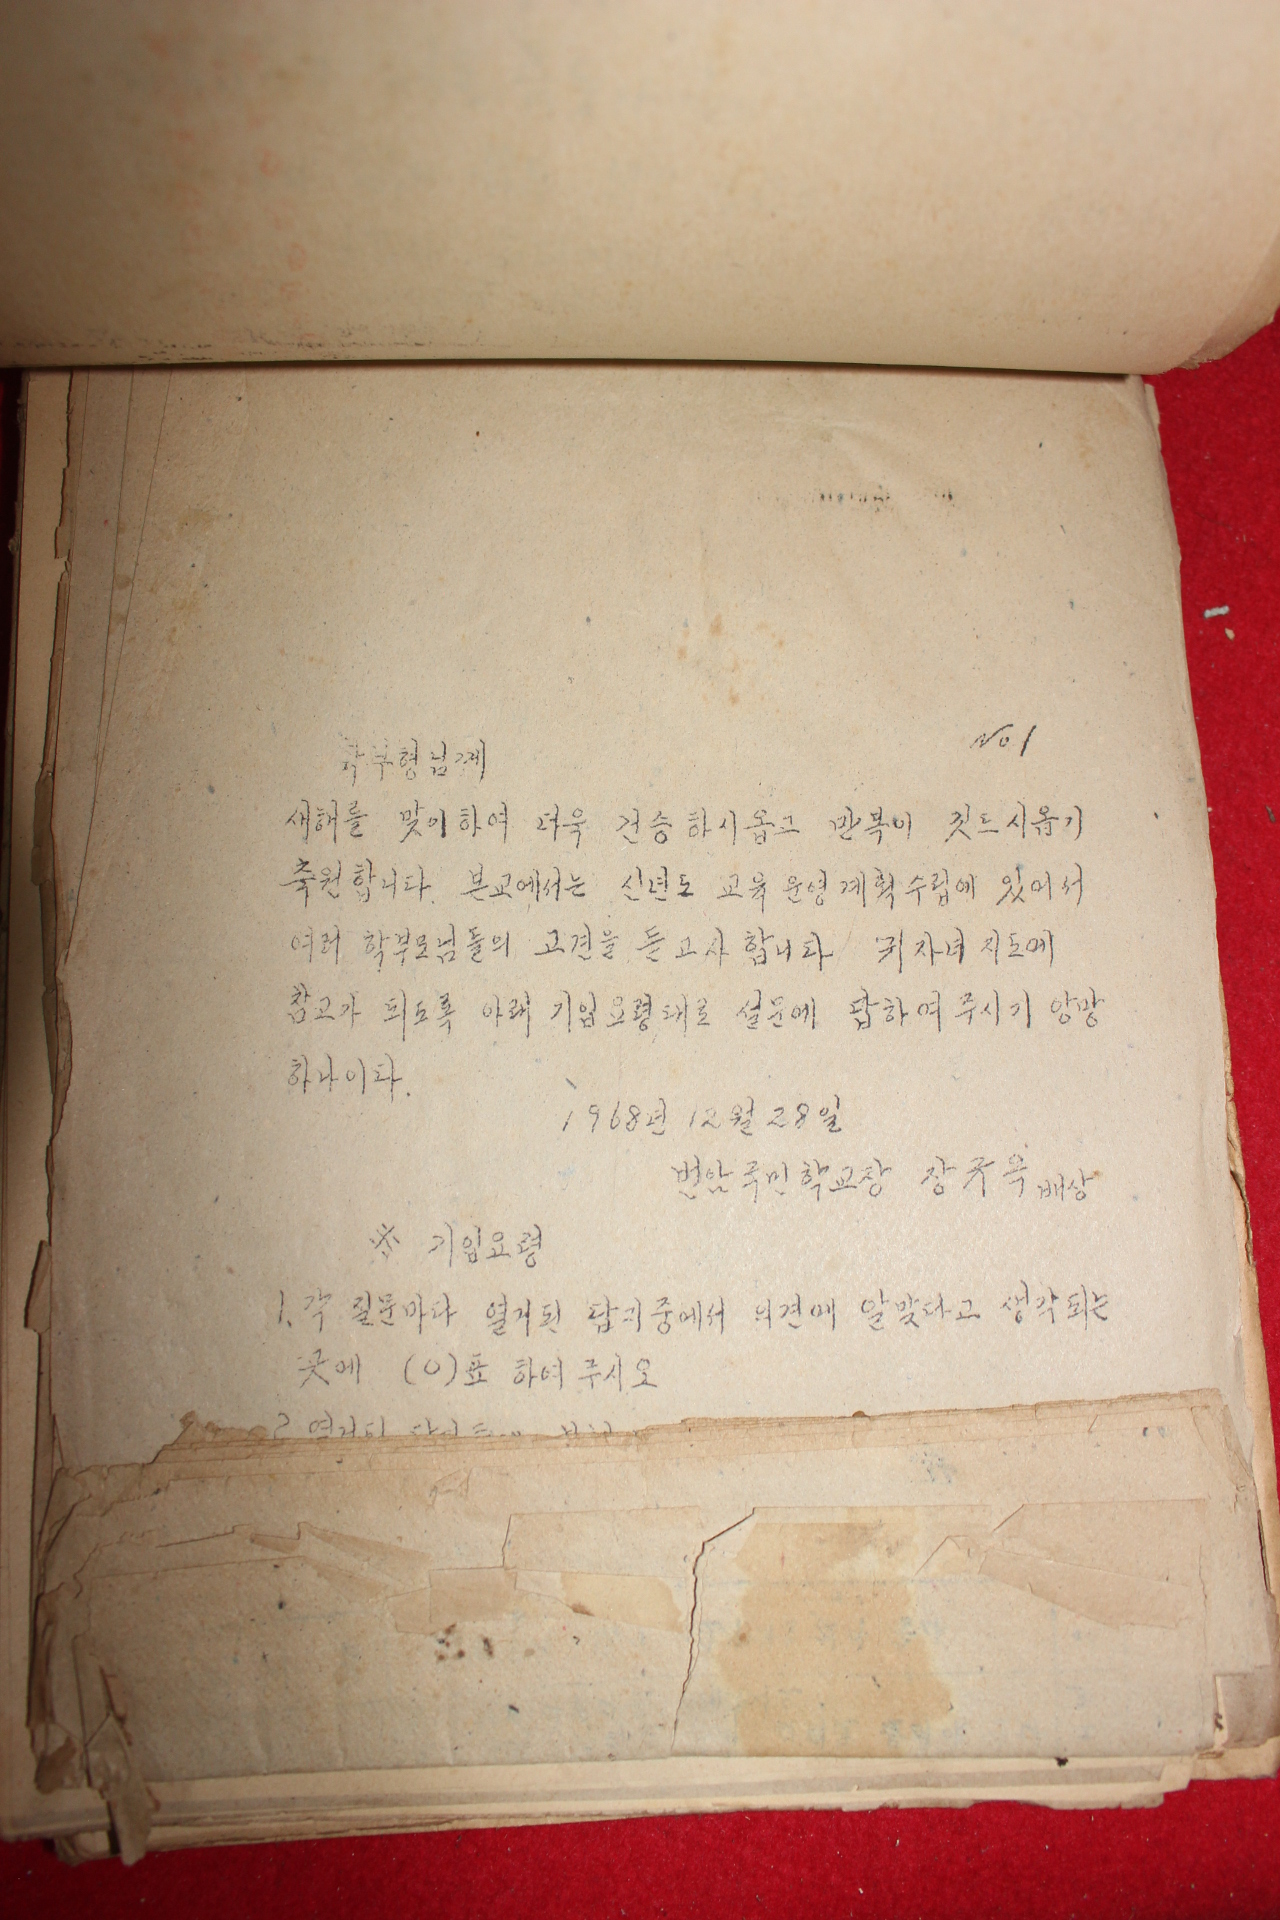 No 1
학부형님께
새해를 맞이하여 더욱 건승하시옵고 만복이 깃드시옵기
축원합니다. 본교에서는 신년도 교육 운영계획수립에 있어서
여러 학부모님들의 고견을 듣고자 합니다 귀자녀 지도에
참고가 되도록 아래 기입요령대로 설문에 답하여 주시기 앙망
하나이다.
1968년 12월 28일
번암국민학교장 장 배상
※ 기입요령
1. 각 질문마다 열거된 답지중에서 의견에 알맞다고 생각되는
곳에 (0)표 하여 주시오
2. 열거된